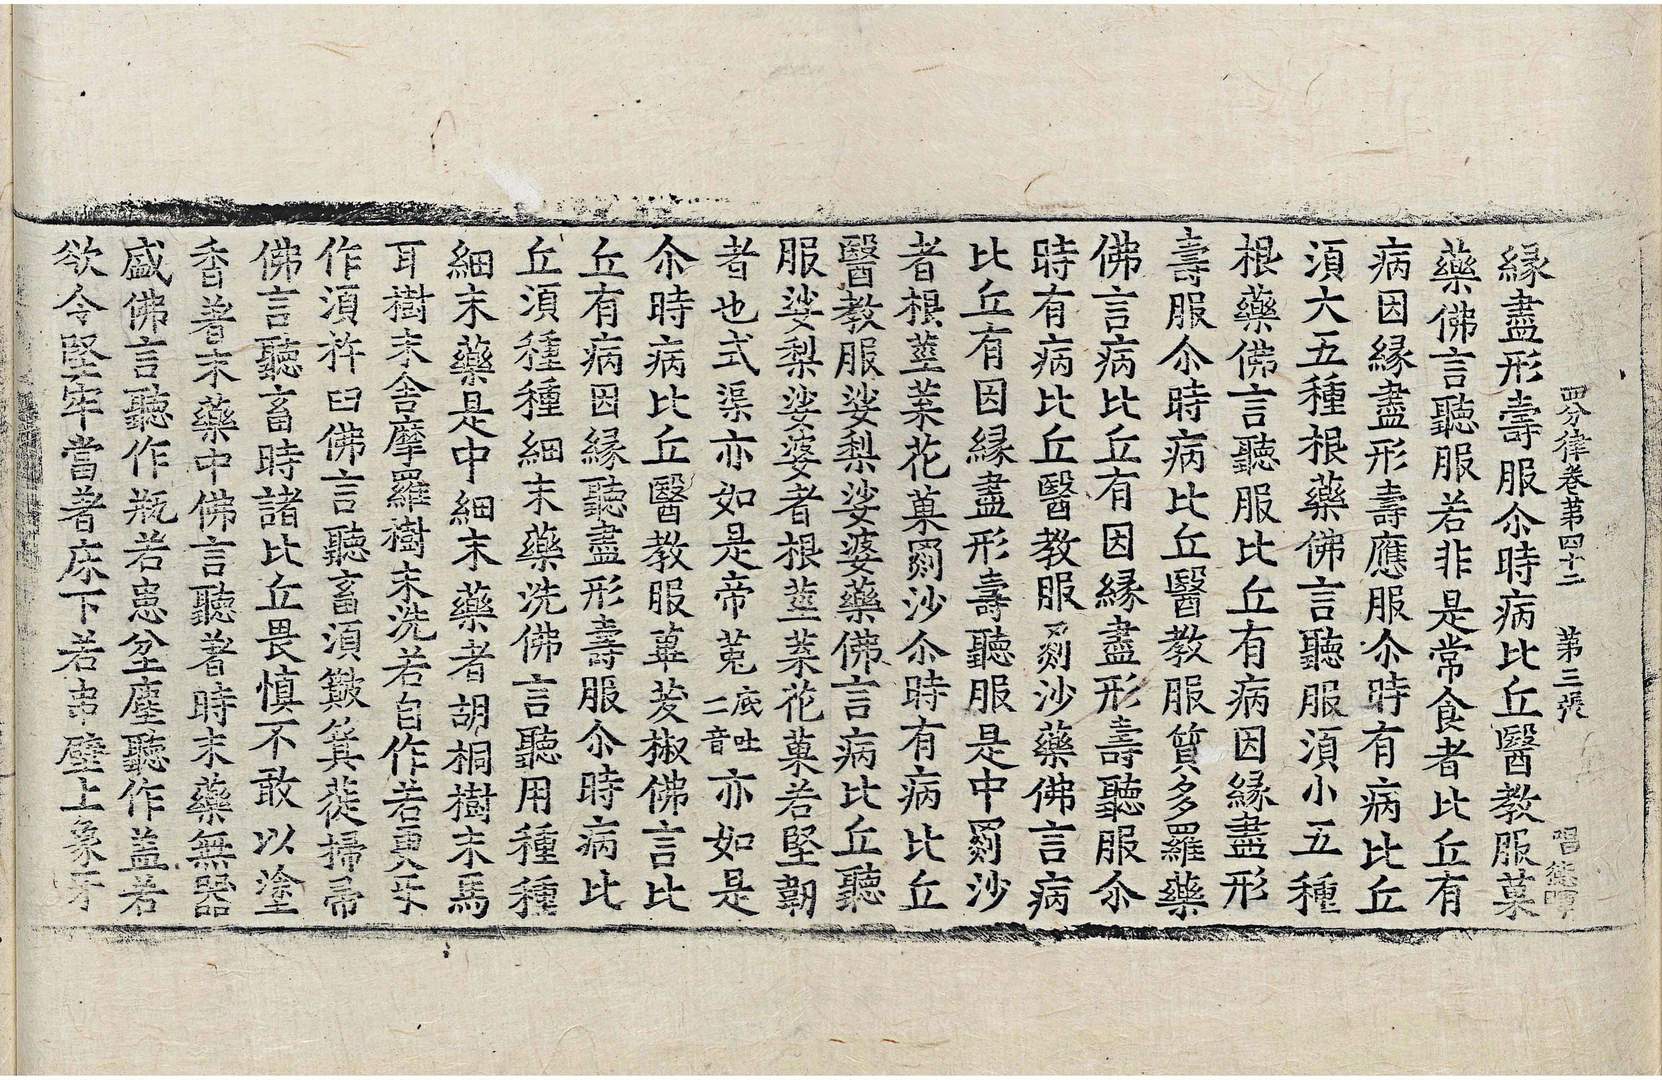 四分律卷第四十二　第三張
緣盡形壽服尒時病比丘醫教服菓
藥佛言聽服若非是常食者比丘有
病因緣盡形壽應服尒時有病比丘
湏大五種根藥佛言聽服湏小五種
根藥佛言聽服比丘有病因緣盡形
壽服尒時病比丘醫教服質多羅藥
佛言病比丘有因緣盡形壽聽服尒
時有病比丘醫教服沙藥佛言病
比丘有因緣盡形壽聽服是中沙
者根莖葉花菓沙尒時有病比丘
醫教服娑梨娑婆藥佛言病比丘聽
服娑梨娑婆者根莖葉花菓若堅韌
者也式渠亦如是帝菟底吐二音亦如是
尒時病比丘醫教服蓽茇椒佛言比
丘有病因緣聽盡形壽服尒時病比
丘湏種種細末藥洗佛言聽用種種
細末藥是中細末藥者胡桐樹末馬
耳樹末舍摩羅樹末洗若自作若更牙
作湏杵臼佛言聽畜湏簸箕蓰掃帚
佛言聽畜時諸比丘畏慎不敢以塗
香著末藥中佛言聽著時末藥無器
盛佛言聽作瓶若患坌塵聽作蓋若
欲令堅牢當著床下若串壁上象牙